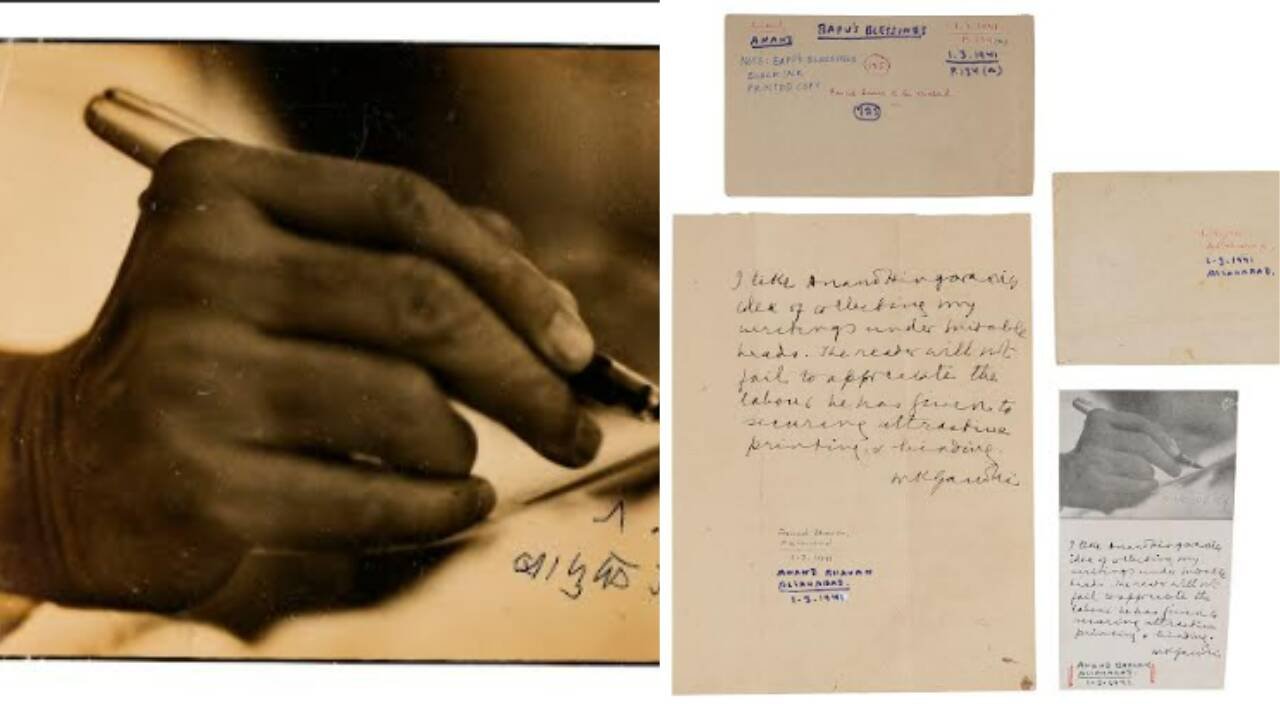 BAPU'S BLESSINGS
ANAND
1.3.1941
NOTE: BAPU'S BLESSINGS
BLOCK
PRINTED COPY
1.3.1941
ALLAHABAD.
I like Anand Hingorani's
idea of collecting my
writings under suitable
heads. The reader will not
fail to appreciate the
labour he has given to
securing attractive
printing & binding.
MKGandhi
Anand Bhavan,
Allahabad
1-3-1941
ANAND BHAVAN
ALLAHABAD.
1-3-1941
I like Anand Hingorani's
idea of collecting my
writings under suitable
heads. The reader will not
fail to appreciate the
labour he has given to
securing attractive
printing & binding.
MKGandhi
ANAND BHAVAN
ALLAHABAD.
1-3-1941